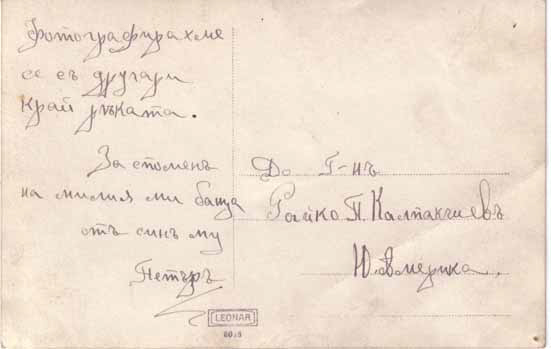 Фотографирахме
се съ другари
край рѣката.
За споменъ
на милия ми баща
отъ синъ му
Петъръ
До Г-нъ
Райко П. Калпакчиевъ
Ю. Америка.
LEONAR